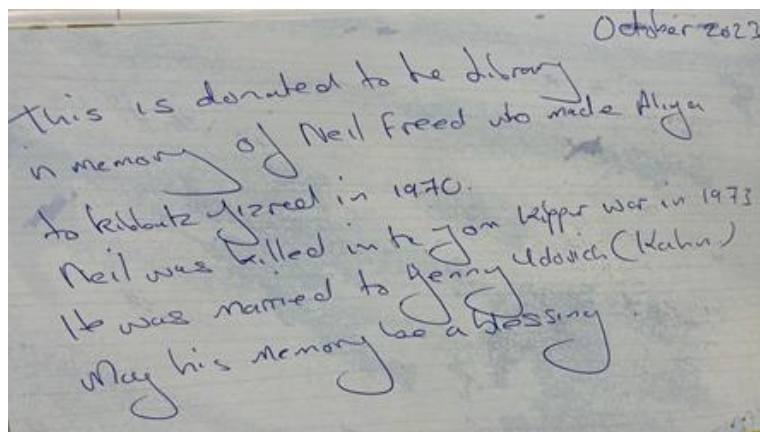 October 2023
This is donated to the Library
in memory of Neil Freed who made Aliya
to kibbutz Yizreel in 1970.
Neil was killed in te Yom Kippur war in 1973
He was married to Jenny Udovich (Kahn)
May his memory be a blessing